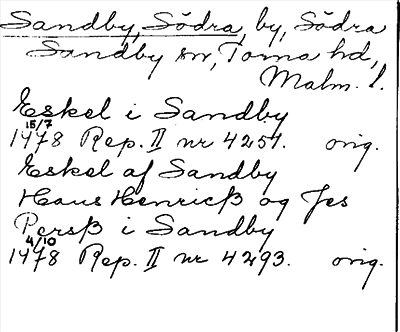 Sandby, Södra, by, Södra
Sandby sn, Torna hd,
Malm. l.
Eskel i Sandby
15/7
1478 Rep. II nr 4251. orig.
Eskel af Sandby
Hans Henricß og Jes
Persß i Sandby
4/10
1478 Rep. II nr 4293. orig.